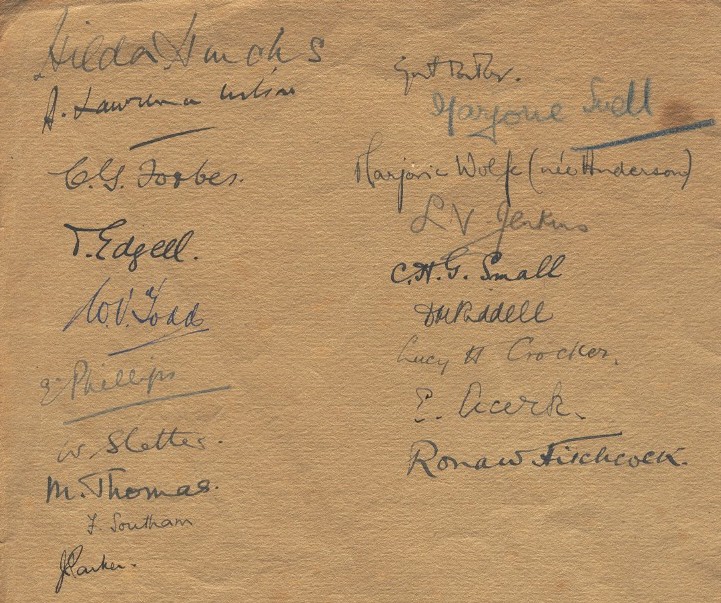 Hilda
A. Lawrence
C. G. Forbes.
T. Edgell.
W. V. Todd
E. Phillips
W. Sletter.
M. Thomas.
F. Southam
J Parker.
Marjorie Snell
Marjorie Wolfe (née Anderson)
L V Jenkins
C. H. G. Small
Riddell
Lucy H Crocker.
E.
Hitchcock.